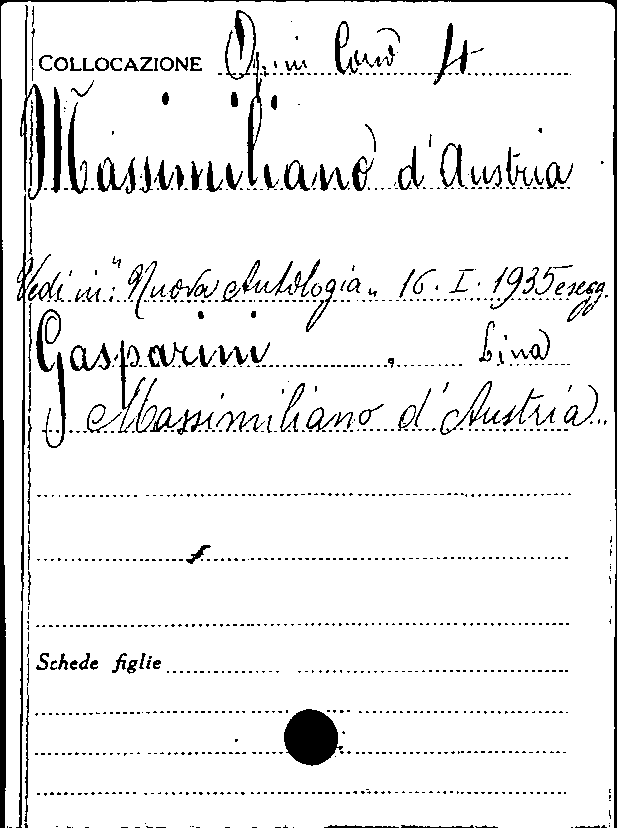 COLLOCAZIONE
Massimiliano d'Austria
Vedi in: "Nuova Antologia" 16. I. 1935 e segg.
Gasparini Lina
Massimiliano d'Austria
Schede figlie